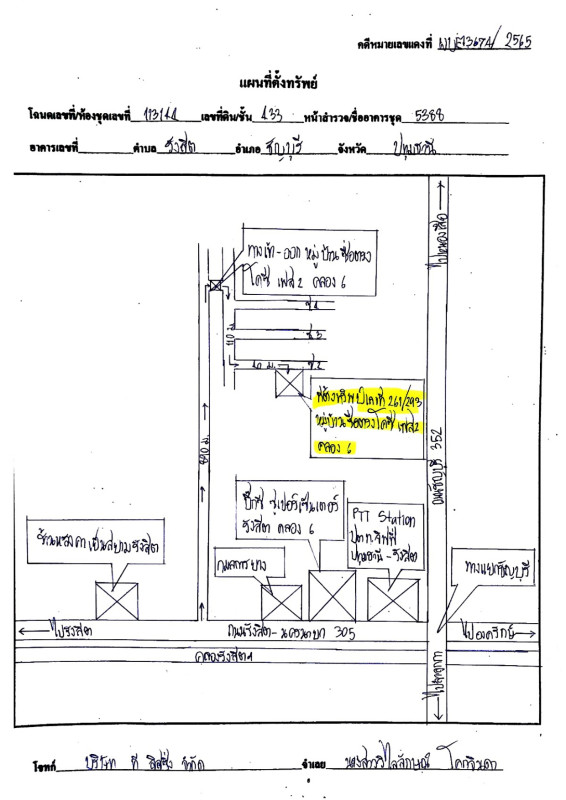 คดีหมายเลขแดงที่ ผบE13674/2565
แผนที่ตั้งทรัพย์
โฉนดเลขที่/ห้องชุดเลขที่ 113144 เลขที่ดิน/ชั้น 433 หน้าสำรวจ/ชื่ออาคารชุด 5388
อาคารเลขที่ ตำบล รังสิต อำเภอ ธัญบุรี จังหวัด ปทุมธานี
ไปหนองเสือ
ทางเข้า-ออก หมู่บ้าน ซื่อตรง
โคซี่ เฟส 2 คลอง 6
ซ.4
110 ม.
ซ.3
40 ม.
ซ.2
ที่ตั้งทรัพย์เลขที่ 261/293
หมู่บ้านซื่อตรงโคซี่ เฟส2
คลอง 6
ถนนธัญบุรี 352
ม.
บิ๊กซี ซุปเปอร์เซ็นเตอร์
รังสิต คลอง 6
PTT Station
ปตท.
ปทุมธานี-รังสิต
ร้านหลังคาเอเชียสยามรังสิต
ทางแยกธัญบุรี
ไปรังสิต
ถนนรังสิต-นครนายก 305
ไปองครักษ์
คลองรังสิตฯ
ไปลำลูกกา
โจทก์ บริษัท ที ลิสซิ่ง จำกัด จำเลย นางสาววิไลลักษณ์ โคกจินดา